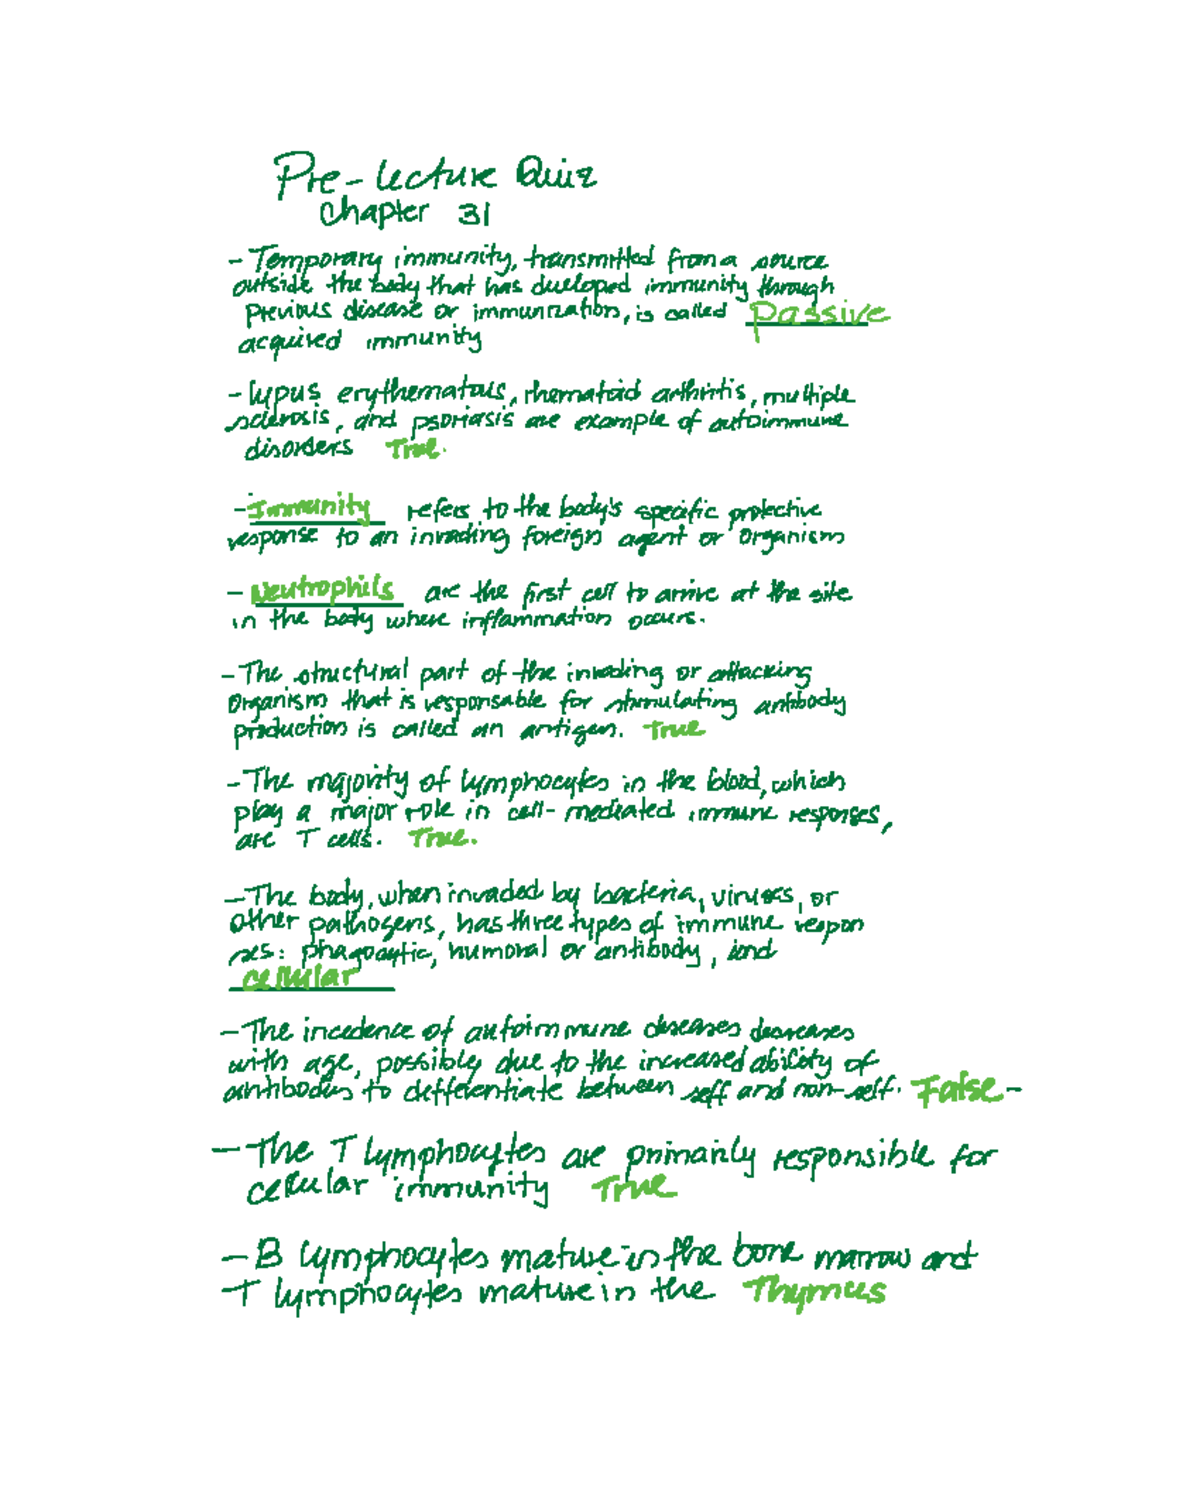 Pre-lecture Quiz
Chapter 31
- Temporary immunity, transmitted from a source
outside the body that has dveloped immunity through
Previous disease or immunization, is called Passive
acquired immunity
- lupus erythematous, rhematoid arthritis, multiple
sclerosis, and psoriasis are example of autoimmune
disorders True.
- Immunity refers to the body's specific protective
response to an invading foreign agent or organism
- Neutrophils are the first cell to arrive at the site
in the body where inflammation occurs.
- The structural part of the invading or attacking
organism that is responsable for stimulating antibody
production is called an antigen. True
- The majority of lymphocytes in the blood, which
play a major role in cell-mediated immune responses,
are T cells. True.
- The body, when invaded by bacteria, viruses, or
other pathogens, has three types of immune respon
ses: phagocytic, humoral or antibody, and
cellular
- The incedence of autoimmune diseases decreases
with age, possibly due to the increased ability of
antibodies to differentiate between self and non-self. False -
- The T lymphocytes are primarily responsible for
cellular immunity True
- B lymphocytes mature in the bone marrow and
T lymphocytes mature in the Thymus